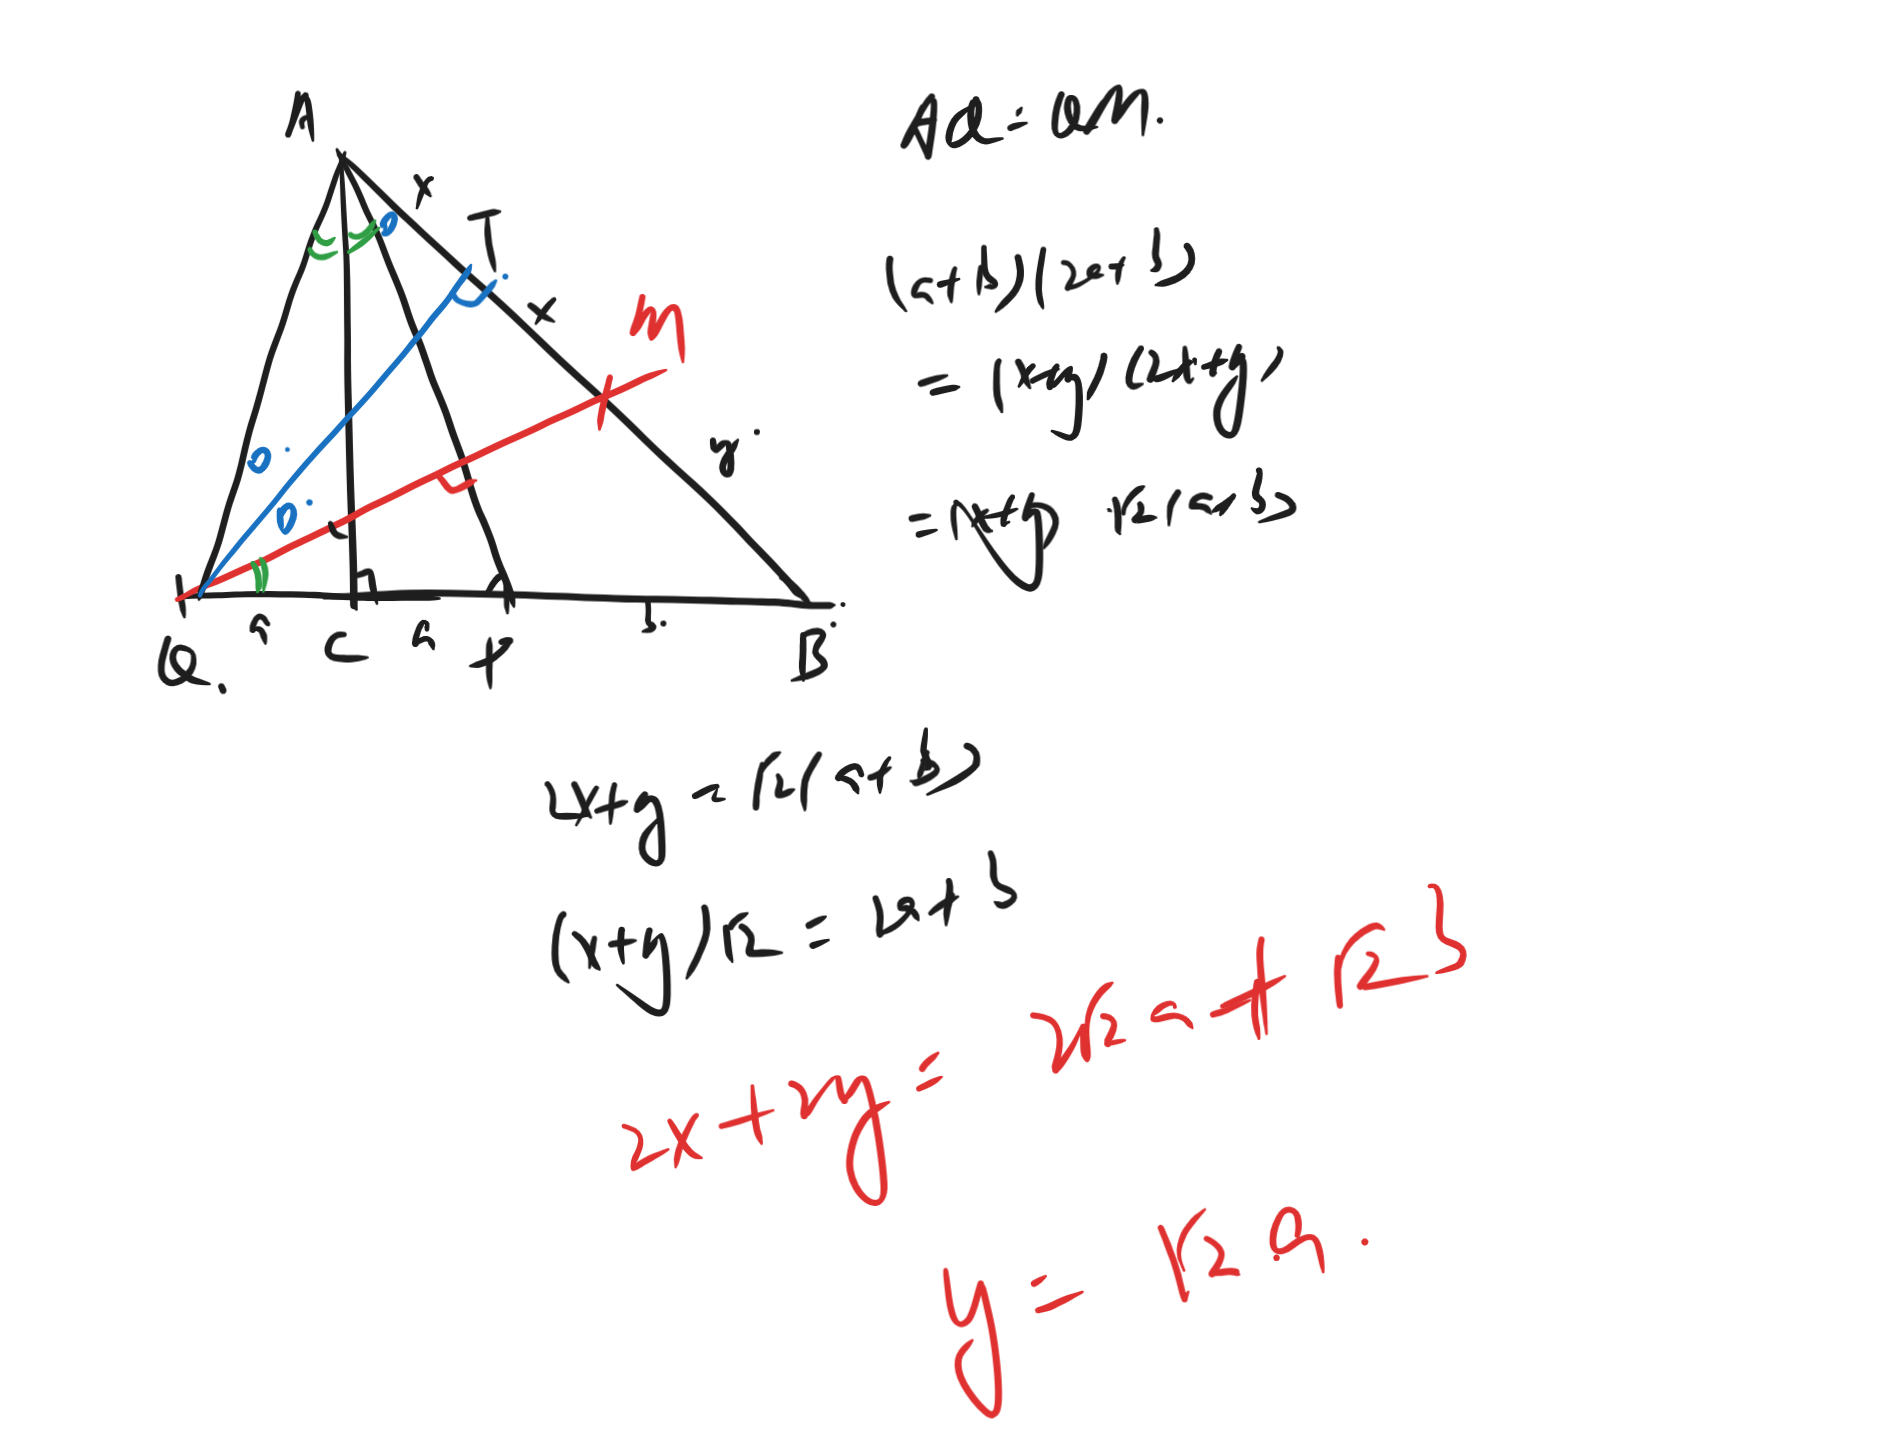 A
x
T
x
M
y
Q.
a
C
a
P
b
B
AQ = QM.
(a+b)(2a+b)
= (x+y)(2x+y)
= (x+y) √2(a+b)
2x+y = √2(a+b)
(x+y)√2 = 2a+b
2x+2y = 2√2a + √2b
y = √2a.